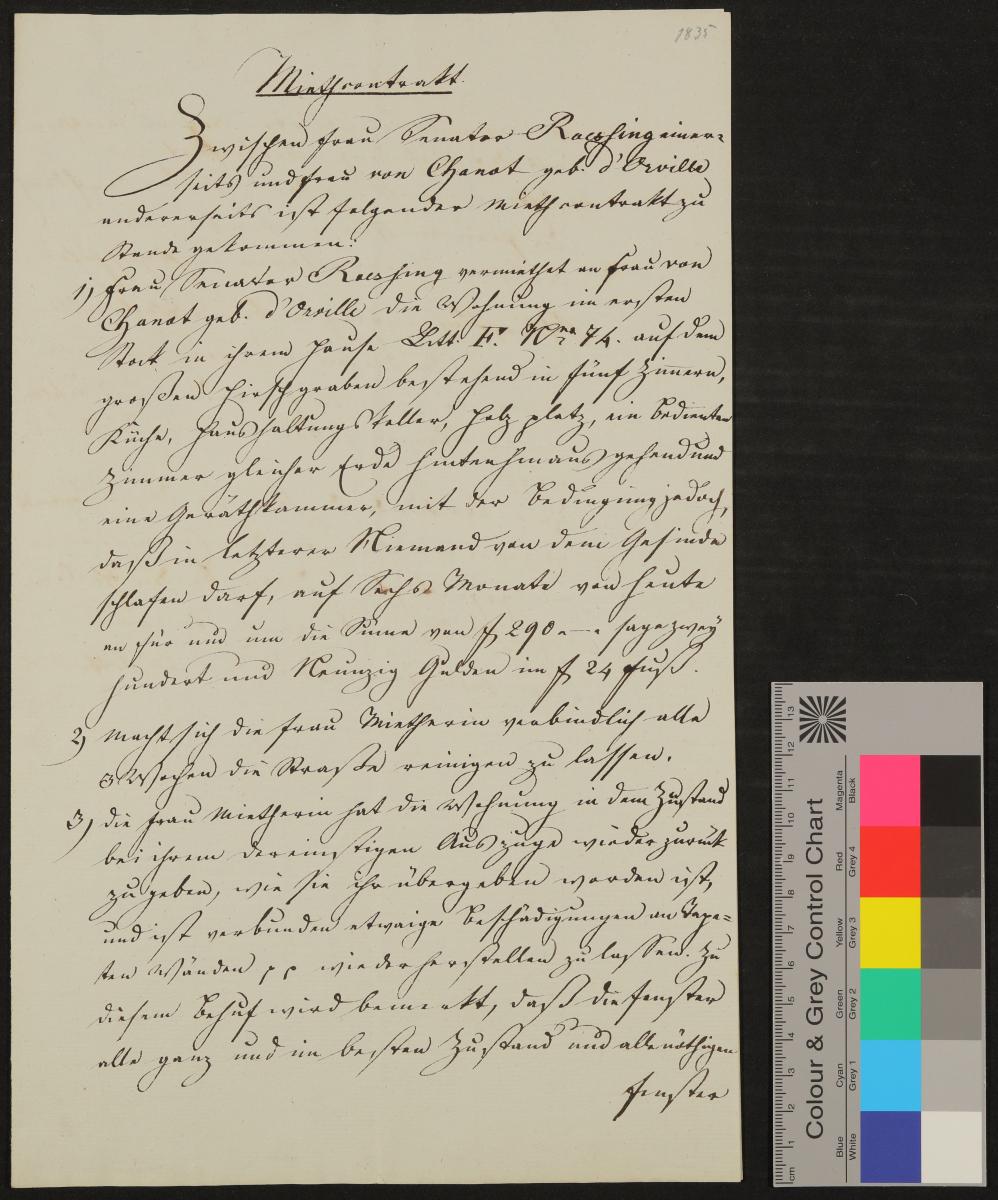 1835
Miethcontrakt.
Zwischen Frau Senator Roessing einer-
seits und Frau von Chanot geb. d'Orville
andererseits ist folgender Miethcontrakt zu
Stande gekommen:
1) Frau Senator Roessing vermiethet an Frau von
Chanot geb. d'Orville die Wohnung im ersten
Stock in ihrem Hause Litt. F. Nro 74. auf dem
großen Hirschgraben bestehend in fünf Zimern,
Küche, Haushaltungskeller, Holzplatz, ein Bedienten
Zimmer gleicher Erde hintenhinaus gehend und
eine Geräthkammer, mit der Bedingung jedoch,
daß in letzterer Niemand von dem Gesinde
schlafen darf, auf Sechs Monate von heute
an für und um die Sume von f 290.—. sage zwey
hundert und Neunzig Gulden im f 24 Fuß.
2) Macht sich die Frau Mietherin verbindlich alle
3 Wochen die Straße reinigen zu lassen.
3) die Frau Mietherin hat die Wohnung in dem Zustand
bei ihrem dereinstigen Auszuge wieder zurück
zu geben, wie sie ihr übergeben worden ist,
und ist verbunden etwaige Beschädigungen an Tape-
ten Wänden pp wiederherstellen zu lassen. Zu
diesem Behuf wird bemerkt, daß die Fenster
alle ganz und im besten Zustand und alle nöthigen
Fenster
Colour & Grey Control Chart
Blue Cyan Green Yellow Red Magenta
White Grey 1 Grey 2 Grey 3 Grey 4 Black
cm 1 2 3 4 5 6 7 8 9 10 11 12 13